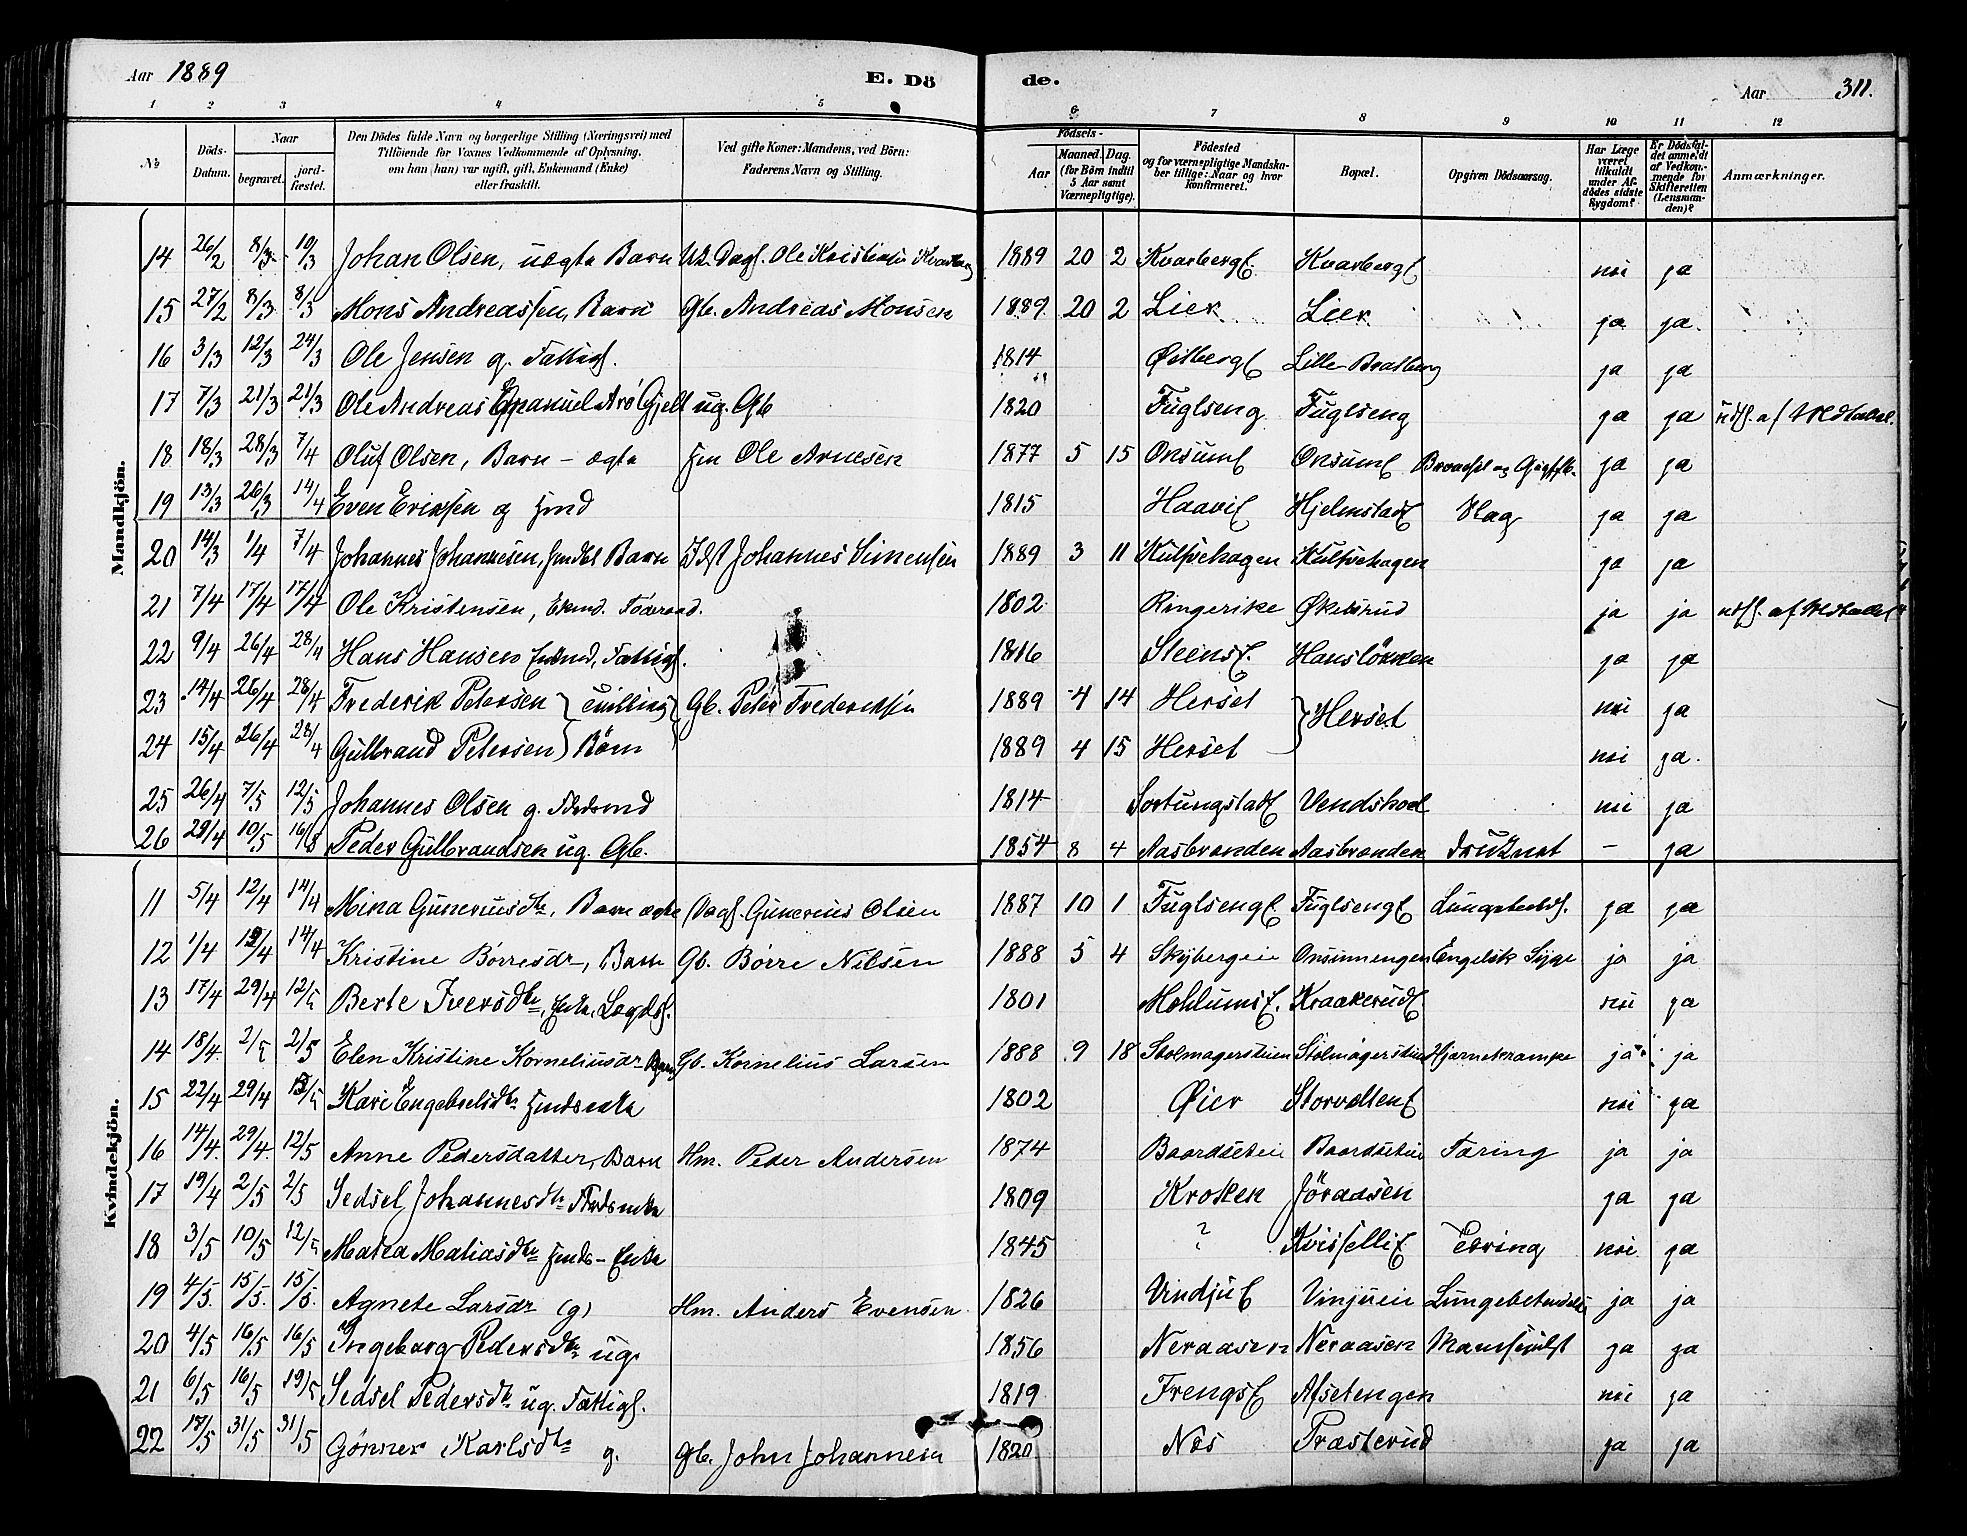 Aar 1889 E. Dö de. Aar 311.
1 2 3 4 5 6 7 8 9 10 11 12
No Döds-Datum. Naar begravet. jord-fæstet. Den Dödes fulde Navn og borgerlige Stilling (Næringsvei) med Tilföiende for Voxnes Vedkommende af Oplysning, om han (hun) var ugift, gift, Enkemand (Enke) eller fraskilt. Ved gifte Koner: Mandens, ved Börn: Faderens Navn og Stilling. Födsels- Aar Maaned. Dag. (for Börn indtil 5 Aar samt Værnepligtige). Födested og for værnepligtige Mandskaber tillige: Naar og hvor konfirmeret. Bopæl. Opgiven Dödsaarsag. Har Læge været tilkaldt under Afdödes sidste Sygdom? Er Dödsfaldet anmeldt af Vedkommende for Skifteretten (Lensmanden)? Anmærkninger.
Mandkjön.
14 26/2 8/3 10/3 Johan Olsen, uægte Barn Dagf. Ole Kristiansen 1889 20 2 Kvarberg Kvarberg nei ja
15 27/2 8/3 8/3 Mons Andreassen, Barn Gb. Andreas Monsen 1889 20 2 Lier Lier ja ja
16 3/3 12/3 24/3 Ole Jensen g. Fattigf. 1814 Lille ja ja
17 7/3 21/3 21/3 Ole Andreas Emanuel ug. Gb 1820 Fuglseng Fuglseng ja ja udf. af
18 18/3 28/3 7/4 Oluf Olsen, Barn - ægte Ole Arnesen 1877 5 15 Onsum Onsum ja ja
19 13/3 26/3 14/4 Even Eriksen 1815 Slag ja ja
20 14/3 1/4 7/4 Johannes Johannesen, Barn Johannes Simensen 1889 3 11 ja ja
21 7/4 17/4 17/4 Ole Kristensen, Ekmd. Föderaad. 1802 Ringerike ja ja udf. af
22 9/4 26/4 28/4 Hans Hansen Fattigf. 1816 Hanslökken ja ja
23 14/4 26/4 28/4 Frederik Petersen tvilling Gb. Peter Frederiksen 1889 4 14 Herset Herset nei ja
24 15/4 26/4 28/4 Gulbrand Petersen Börn 1889 4 15 Herset nei ja
25 26/4 7/5 12/5 Johannes Olsen g. 1814 nei ja
26 29/4 10/5 Peder Gulbrandsen ug. Gb. 1854 8 4 Aasbrænden Aasbrænden druknet - ja
Kvindekjön.
11 5/4 12/4 14/4 Mina Guneriusdtr, Barn ægte Dagf. Gunerius Olsen 1887 10 1 Fuglseng Fuglseng Lungebetd. ja ja
12 1/4 14/4 Kristine Börresdr, Barn Gb. Börre Nilsen 1888 5 4 Skybergeie Onsumengen Engelsk Syge ja ja
13 17/4 29/4 12/5 Berte Iversdtr, Enke, Lægdsl. 1801 nei ja
14 18/4 2/5 2/5 Elen Kristine Korneliusdr Barn Gb. Kornelius Larsen 1888 9 18 Stolmagerstuen Stolmagerstuen Hjernekrampe ja ja
15 22/4 29/4 Kari Engebretsdtr 1802 Öier nei ja
16 14/4 29/4 12/5 Anne Pedersdatter, Barn Hm. Peder Andersen 1874 Baardseteie Baardseteie Tæring ja ja
17 19/4 2/5 2/5 Sedsel Johannesdtr 1809 Kroken ja ja
18 3/5 10/5 12/5 Matiasdtr Enke 1845 ? Tæring nei ja
19 4/5 15/5 15/5 Agnete Larsdr (g) Hm. Anders Evensen 1826 Vindju Vinjueie Lungebetændelse ja ja
20 4/5 16/5 16/5 Ingeborg Pedersdtr ug. 1856 Neraasen Neraasen ja ja
21 6/5 16/5 19/5 Sedsel Pedersdtr ug. Fattigl. 1819 Afsetengen nei ja
22 31/5 31/5 Gönner Karlsdtr g. Gb. John Johannesen 1820 Næs Præsterud ja ja